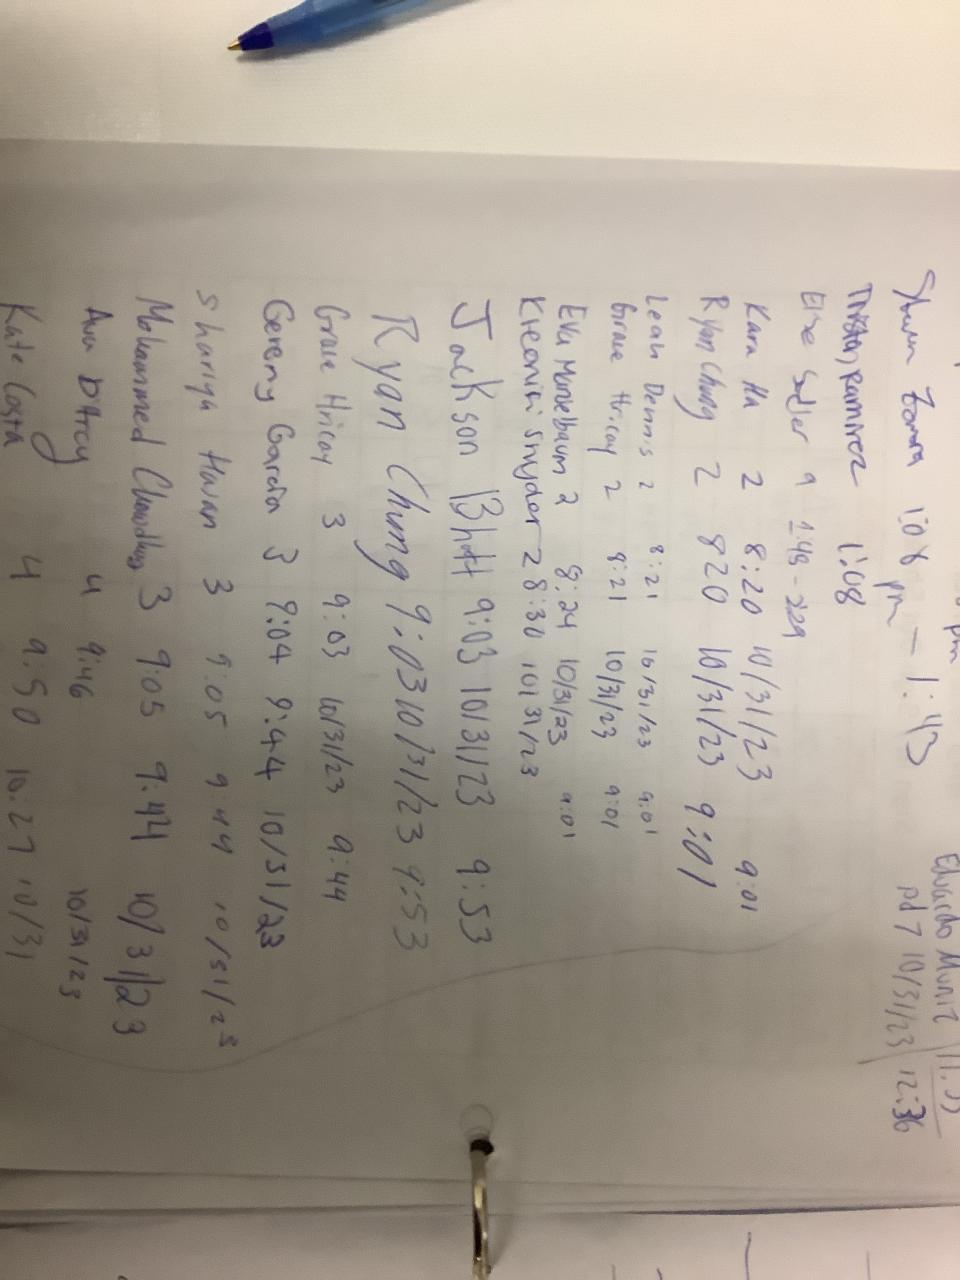 pm
Eduardo Muniz
Shun 1:08 pm - 1:43 pd 7 10/31/23 12:36
Tristan Ramirez 1:08
Elise Sadler 9 1:48 - 229
Kara Ha 2 8:20 10/31/23 9:01
Ryan Chung 2 820 10/31/23 9:01
Leah Dennis 2 8:21 10/31/23 9:01
Grace Hricay 2 8:21 10/31/23 9:01
Eva Mandelbaum 2 8:24 10/31/23 9:01
Kleoniki Snyder 2 8:30 10/31/23
Jackson Bhatt 9:03 10/31/23 9:53
Ryan Chung 9:03 10/31/23 9:53
Grace Hricay 3 9:03 10/31/23 9:44
Gereny Garcia 3 9:04 9:44 10/31/23
Shariya 3 9:05 9:44 10/31/23
Mohammed Chowdhury 3 9:05 9:44 10/31/23
Ava D'Arcy 4 9:46 10/31/23
Kate Costa 4 9:50 10:27 10/31